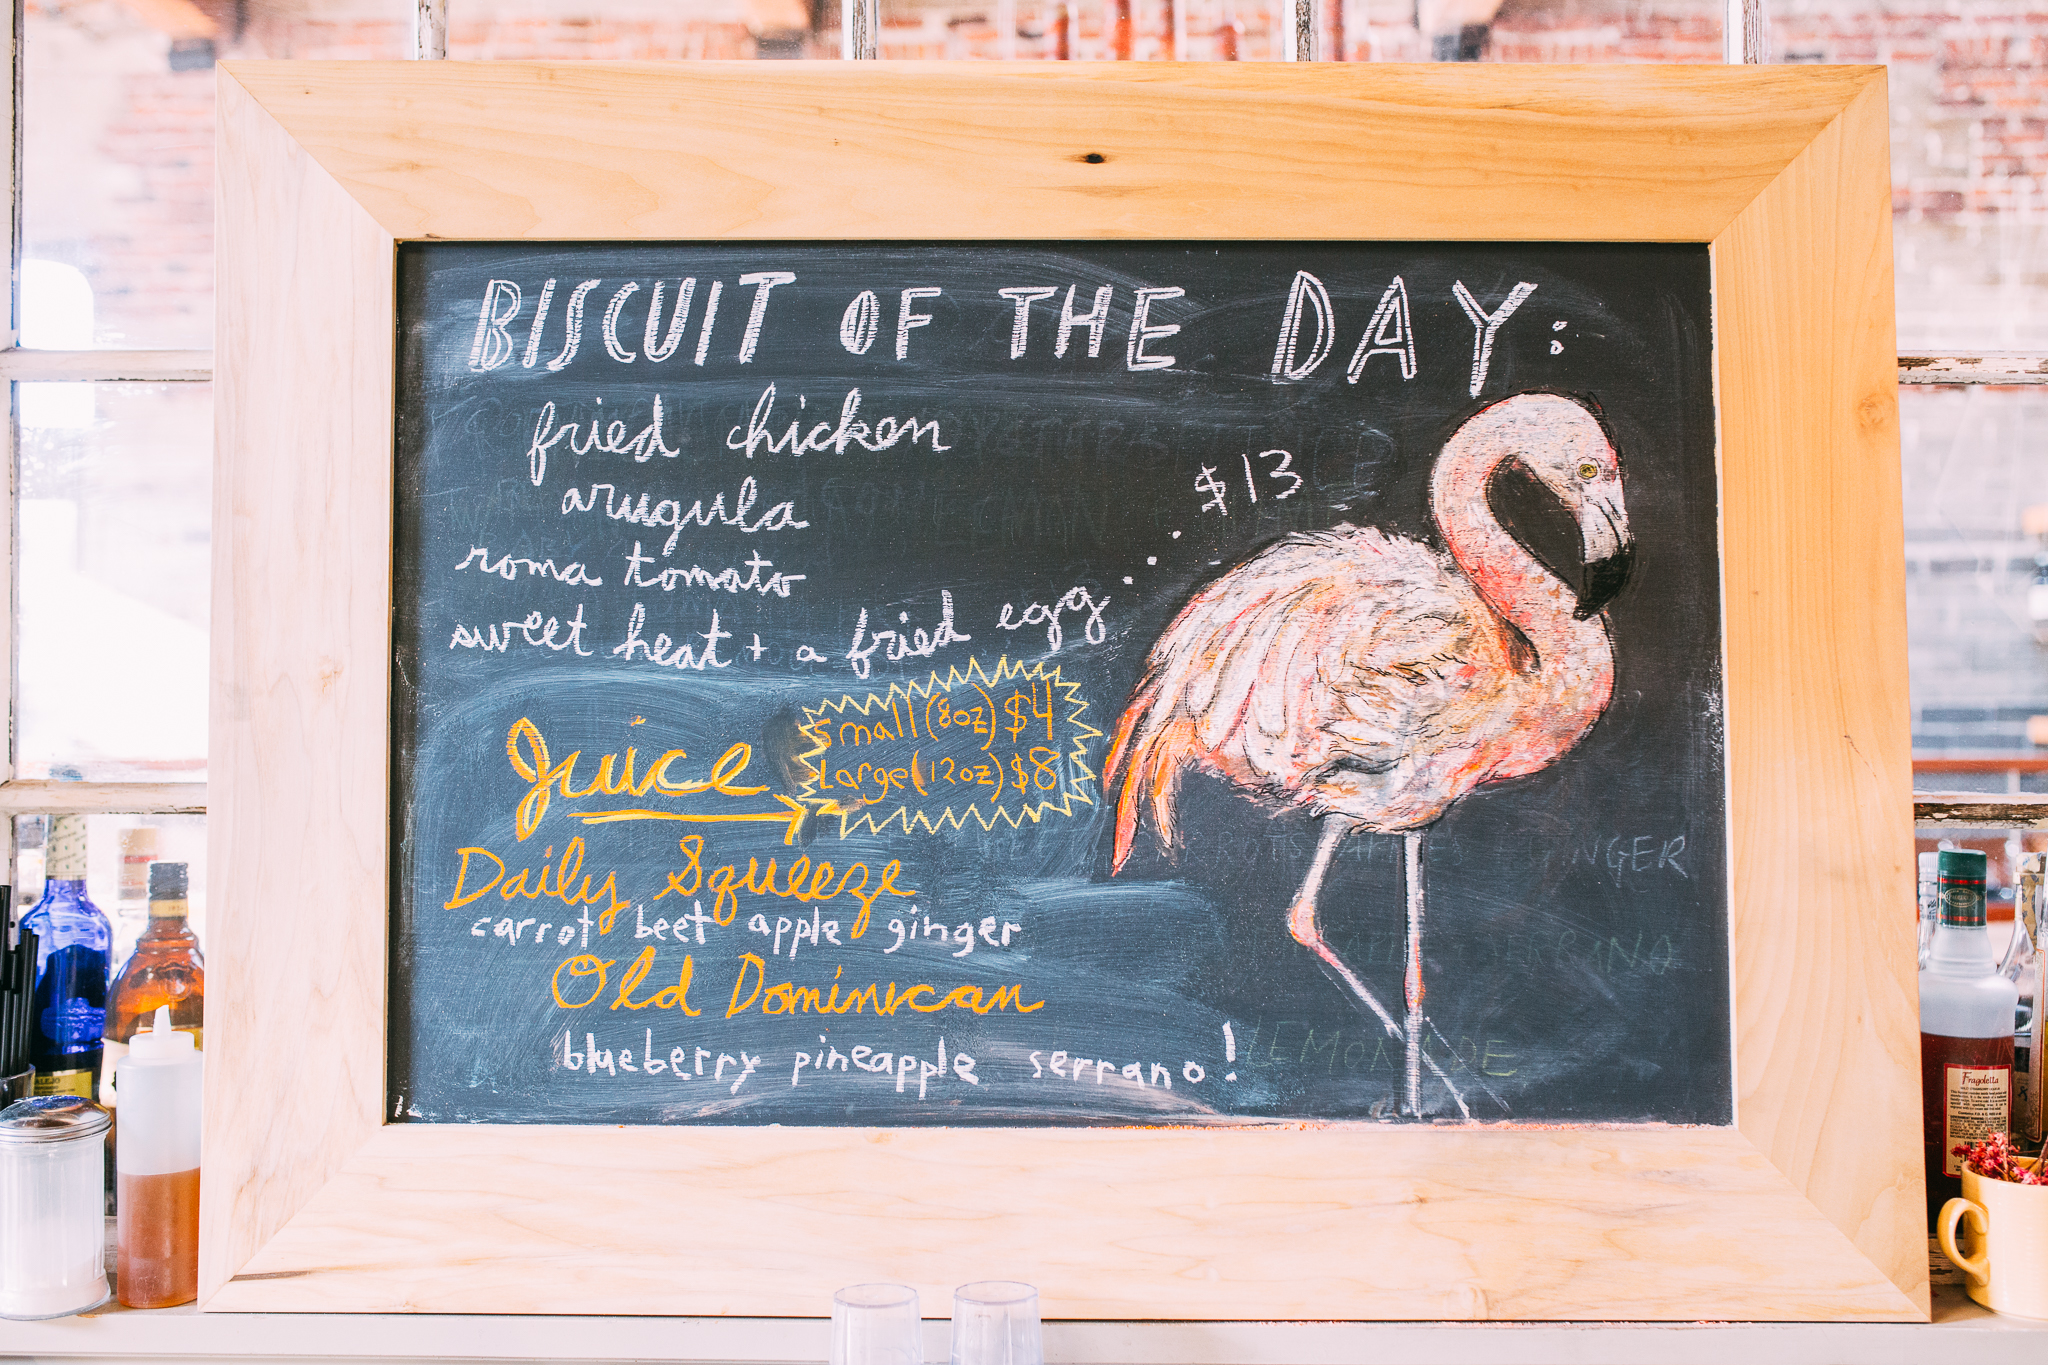 BISCUIT OF THE DAY:
fried chicken
arugula
roma tomato
sweet heat + a fried egg... $13
Juice
small (8oz) $4
Large (12oz) $8
Daily Squeeze
carrot beet apple ginger
Old Dominican
blueberry pineapple serrano!
GINGER
SERRANO
LEMONADE
Fragoletta